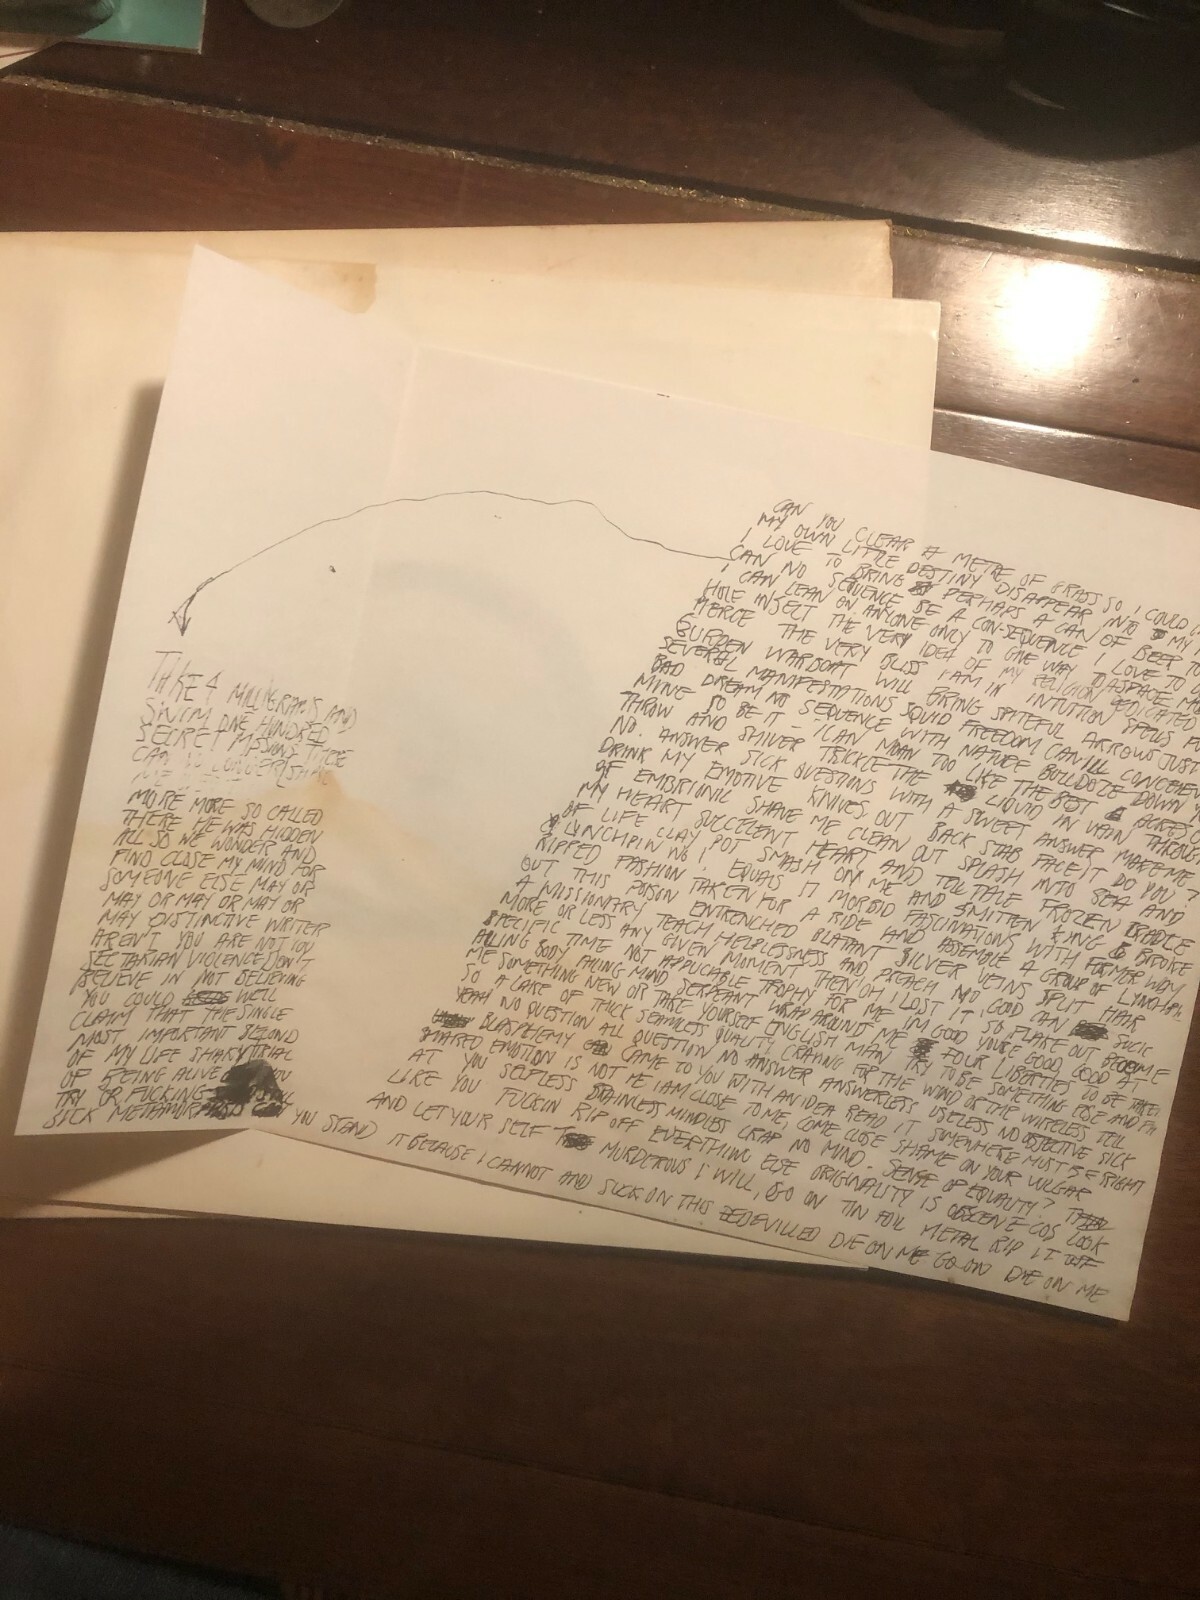 CAN YOU CLEAR A METRE OF GRASS SO I COULD
MY OWN LITTLE DESTINY DISAPPEAR INTO MY
I LOVE TO BRING PERHAPS A CAN OF BEER TO
CAN NO SEQUENCE BE A CON-SEQUENCE I LOVE TO
I CAN LEAN ON ANYONE ONLY TO GIVE WAY
HOLE INSECT THE VERY IDEA OF MY RELIGION DEDICATED
MERGE THE VERY BLISS I AM IN INTUITION SPELLS
BURDEN WARBOAT WILL BRING SPITEFUL ARROWS JUST
SEVERAL MANIFESTATIONS SQUID FREEDOM CAN ILL
BAD DREAM NO SEQUENCE WITH NATURE BULLDOZE DOWN
MINE SO BE IT - I CAN MOAN TOO LIKE THE BEST ACRES OF
THROW AND SHIVER TRICKLE THE LIQUID IN VAIN THROUGH
NO. ANSWER SICK QUESTIONS WITH A SWEET ANSWER MAKE ME
DRINK MY EMOTIVE KNIVES OUT BACK STAB FACE IT DO YOU?
OF EMBRIONIC SHAVE ME CLEAN OUT SPLASH INTO SEA AND
MY HEART SUCCULENT HEART AND TELLTALE FROZEN CRADLE
OF LIFE CLAY POT SMASH ON ME AND SMITTEN KING BROKE
LYNCHPIN NO! EQUALS IT MORBID FASCINATIONS WITH FORMER WAY
RIPPED FASHION TAKEN FOR A RIDE AND ASSEMBLE A GROUP OF LYNCH
OUT THIS POISON ENTRENCHED BLATANT SILVER VEINS SPLIT HAIR
A MISSIONARY TEACH HELPLESSNESS AND PREACH NO GOOD CAN SUCK
MORE OR LESS ANY GIVEN MOMENT THEN OH I LOST IT, SO FLAKE OUT BECOME
SPECIFIC TIME NOT APPLICABLE TROPHY FOR ME I'M GOOD YOU'RE GOOD, GOOD AT
AILING BODY AILING MIND SERPEANT WRAP AROUND ME FOUR LIBERTIES TO BE TAKEN
ME SOMETHING NEW OR TAKE YOURSELF ENGLISH MAN TRY TO BE SOMETHING ELSE AND
SO A CAKE OF THICK SEAMLESS QUALITY CRAVING FOR THE WIND OR THE WIRELESS TELL
YEAH NO QUESTION ALL QUESTION NO ANSWER ANSWERLESS USELESS NO OBJECTIVE SICK
BLASPHEMY CAME TO YOU WITH AN IDEA READ IT SOMEWHERE MUST BE RIGHT
SHARED EMOTION IS NOT ME I AM CLOSE TO ME, COME CLOSE SHAME ON YOUR VULGAR
AT YOU SELFLESS STAINLESS MINDLESS CRAP NO MIND. SENSE OF EQUALITY?
LIKE YOU FUCKIN RIP OFF EVERYTHING ELSE ORIGINALITY IS OBSCENE COS LOOK
AND LET YOUR SELF MURDEROUS I WILL, GO ON TIN FOIL METAL RIP IT OFF
YOU STAND IT BECAUSE I CANNOT AND SUCK ON THIS BEDEVILLED DIE ON ME GO ON DIE ON ME
TAKE 4 MILLIGRAMS AND
SWIM ONE HUNDRED
SECRET MISSIONS THESE
CAN NO LONGER
ME
MORE MORE SO CALLED
THERE HE WAS HIDDEN
ALL SO WE WONDER AND
FIND CLOSE MY MIND FOR
SOMEONE ELSE MAY OR
MAY OR MAY OR MAY OR
MAY DISTINCTIVE WRITER
AREN'T YOU ARE NOT YOU
SECTARIAN VIOLENCE DON'T
BELIEVE IN NOT BELIEVING
YOU COULD WELL
CLAIM THAT THE SINGLE
MOST IMPORTANT SECOND
OF MY LIFE SHAKY TRIAL
OF BEING ALIVE YOU
TRY OR FUCKING
SICK